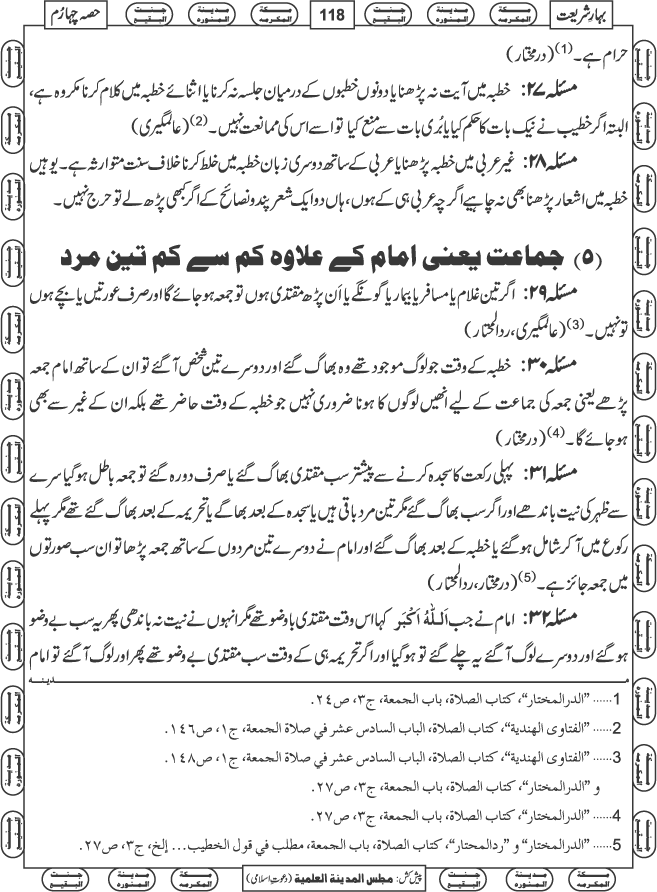 بہارِ شریعت
118
حصہ چہارم
حرام ہے۔(1) (درمختار)
مسئلہ ۲۷: خطبہ میں آیت نہ پڑھنا یا دونوں خطبوں کے درمیان جلسہ نہ کرنا یا اثنائے خطبہ میں کلام کرنا مکروہ ہے،
البتہ اگر خطیب نے نیک بات کا حکم کیا یا بُری بات سے منع کیا تو اسے اس کی ممانعت نہیں۔(2) (عالمگیری)
مسئلہ ۲۸: غیر عربی میں خطبہ پڑھنا یا عربی کے ساتھ دوسری زبان خطبہ میں خلط کرنا خلاف سنت متوارثہ ہے۔ یوہیں
خطبہ میں اشعار پڑھنا بھی نہ چاہیے اگرچہ عربی ہی کے ہوں، ہاں دو ایک شعر پند و نصائح کے اگر کبھی پڑھ لے تو حرج نہیں۔
(۵) جماعت یعنی امام کے علاوہ کم سے کم تین مرد
مسئلہ ۲۹: اگر تین غلام یا مسافر یا بیمار یا گونگے یا اَن پڑھ مقتدی ہوں تو جمعہ ہو جائے گا اور صرف عورتیں یا بچے ہوں
تو نہیں۔(3) (عالمگیری، ردالمحتار)
مسئلہ ۳۰: خطبہ کے وقت جو لوگ موجود تھے وہ بھاگ گئے اور دوسرے تین شخص آگئے تو ان کے ساتھ امام جمعہ
پڑھے یعنی جمعہ کی جماعت کے لیے انھیں لوگوں کا ہونا ضروری نہیں جو خطبہ کے وقت حاضر تھے بلکہ ان کے غیر سے بھی
ہو جائے گا۔(4) (درمختار)
مسئلہ ۳۱: پہلی رکعت کا سجدہ کرنے سے پیشتر سب مقتدی بھاگ گئے یا صرف دو رہ گئے تو جمعہ باطل ہوگیا سرے
سے ظہر کی نیت باندھے اور اگر سب بھاگ گئے مگر تین مرد باقی ہیں یا سجدہ کے بعد بھاگے یا تحریمہ کے بعد بھاگ گئے تھے مگر پہلے
رکوع میں آکر شامل ہوگئے یا خطبہ کے بعد بھاگ گئے اور امام نے دوسرے تین مردوں کے ساتھ جمعہ پڑھا تو ان سب صورتوں
میں جمعہ جائز ہے۔(5) (درمختار، ردالمحتار)
مسئلہ ۳۲: امام نے جب اَللّٰہُ اَکْبَر کہا اس وقت مقتدی باوضو تھے مگر انہوں نے نیت نہ باندھی پھر یہ سب بے وضو
ہوگئے اور دوسرے لوگ آگئے یہ چلے گئے تو ہوگیا اور اگر تحریمہ ہی کے وقت سب مقتدی بے وضو تھے پھر اور لوگ آگئے تو امام
مدینہ
1...... "الدرالمختار"، کتاب الصلاة، باب الجمعة، ج۳، ص۲٤.
2...... "الفتاوی الهندية"، کتاب الصلاة، الباب السادس عشر في صلاة الجمعة، ج۱، ص۱٤٦.
3...... "الفتاوی الهندية"، کتاب الصلاة، الباب السادس عشر في صلاة الجمعة، ج۱، ص۱٤۸.
و "الدرالمختار"، کتاب الصلاة، باب الجمعة، ج۳، ص۲۷.
4...... "الدرالمختار"، کتاب الصلاة، باب الجمعة، ج۳، ص۲۷.
5...... "الدرالمختار" و "ردالمحتار"، کتاب الصلاة، باب الجمعة، مطلب في قول الخطيب... إلخ، ج۳، ص۲۷.
پیش کش: مجلس المدينة العلمية (دعوتِ اسلامی)